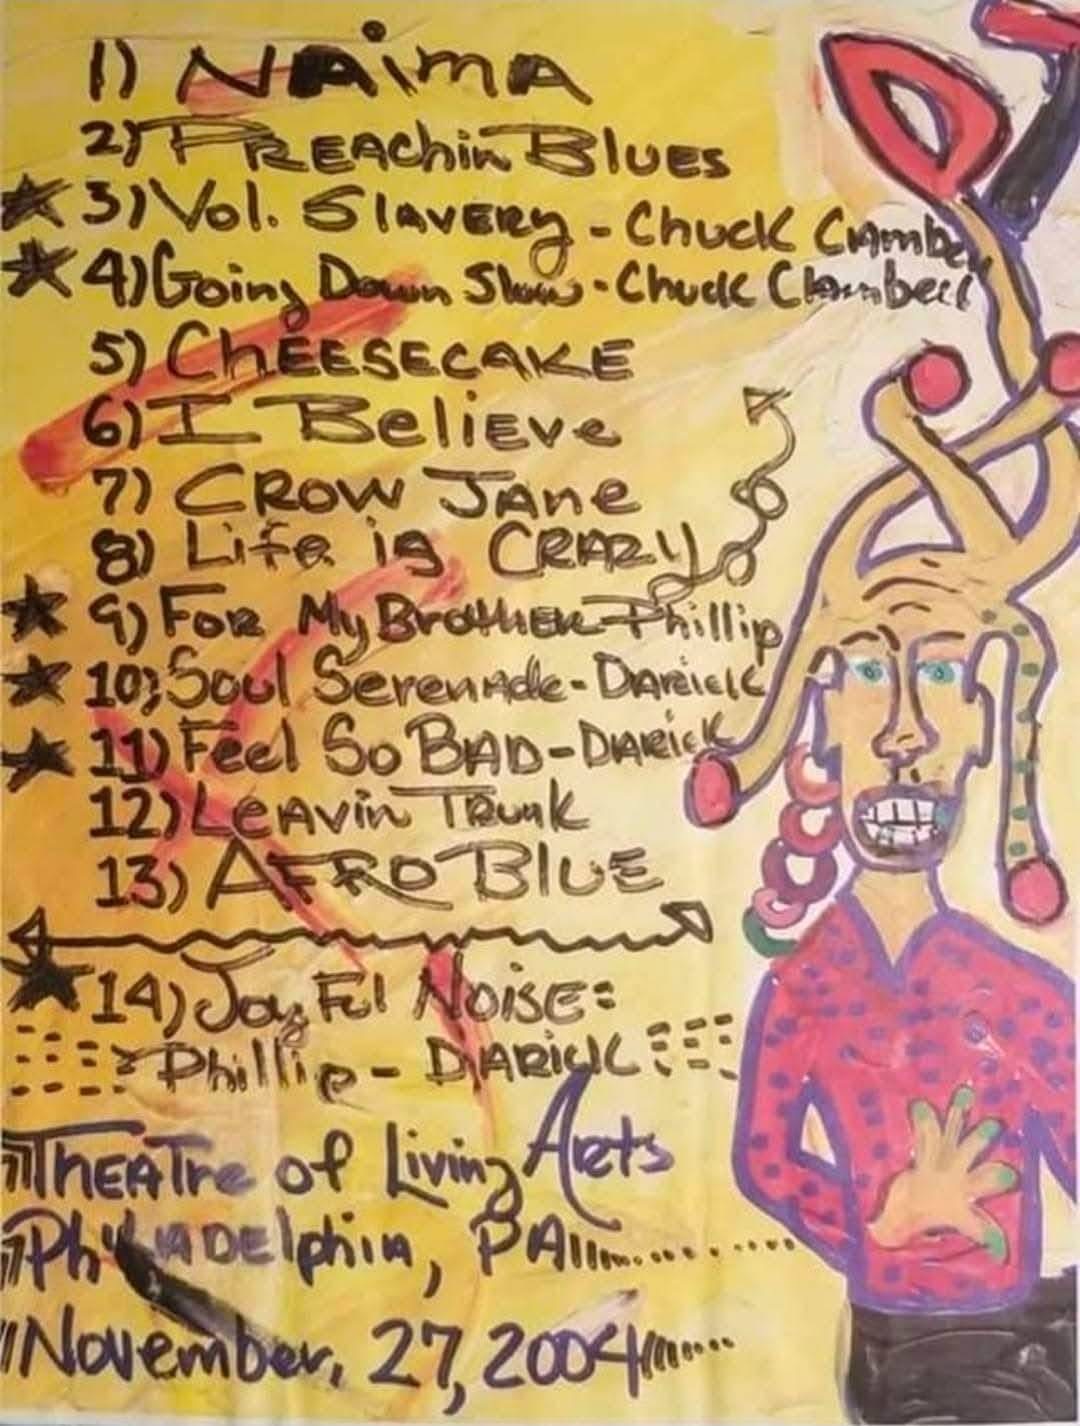 1) NAimA
2) PREAchin BLUES
3) Vol. SLAVERY - Chuck CLAmbe
4) Going Down Slow - Chuck Clambell
5) ChEESECAKE
6) I BeliEVe
7) CROW JAne
8) Life is CRAZY
9) For My BroTHER-Phillip
10) Soul SerenAde - DARICK
11) Feel So BAD - DARICK
12) LeAvin Trunk
13) AFRO BLUE
14) Joy Ful NOISE:
Phillip - DARICK
THEATre of Living Arts
PhilADElphiA, PA
November, 27, 2004